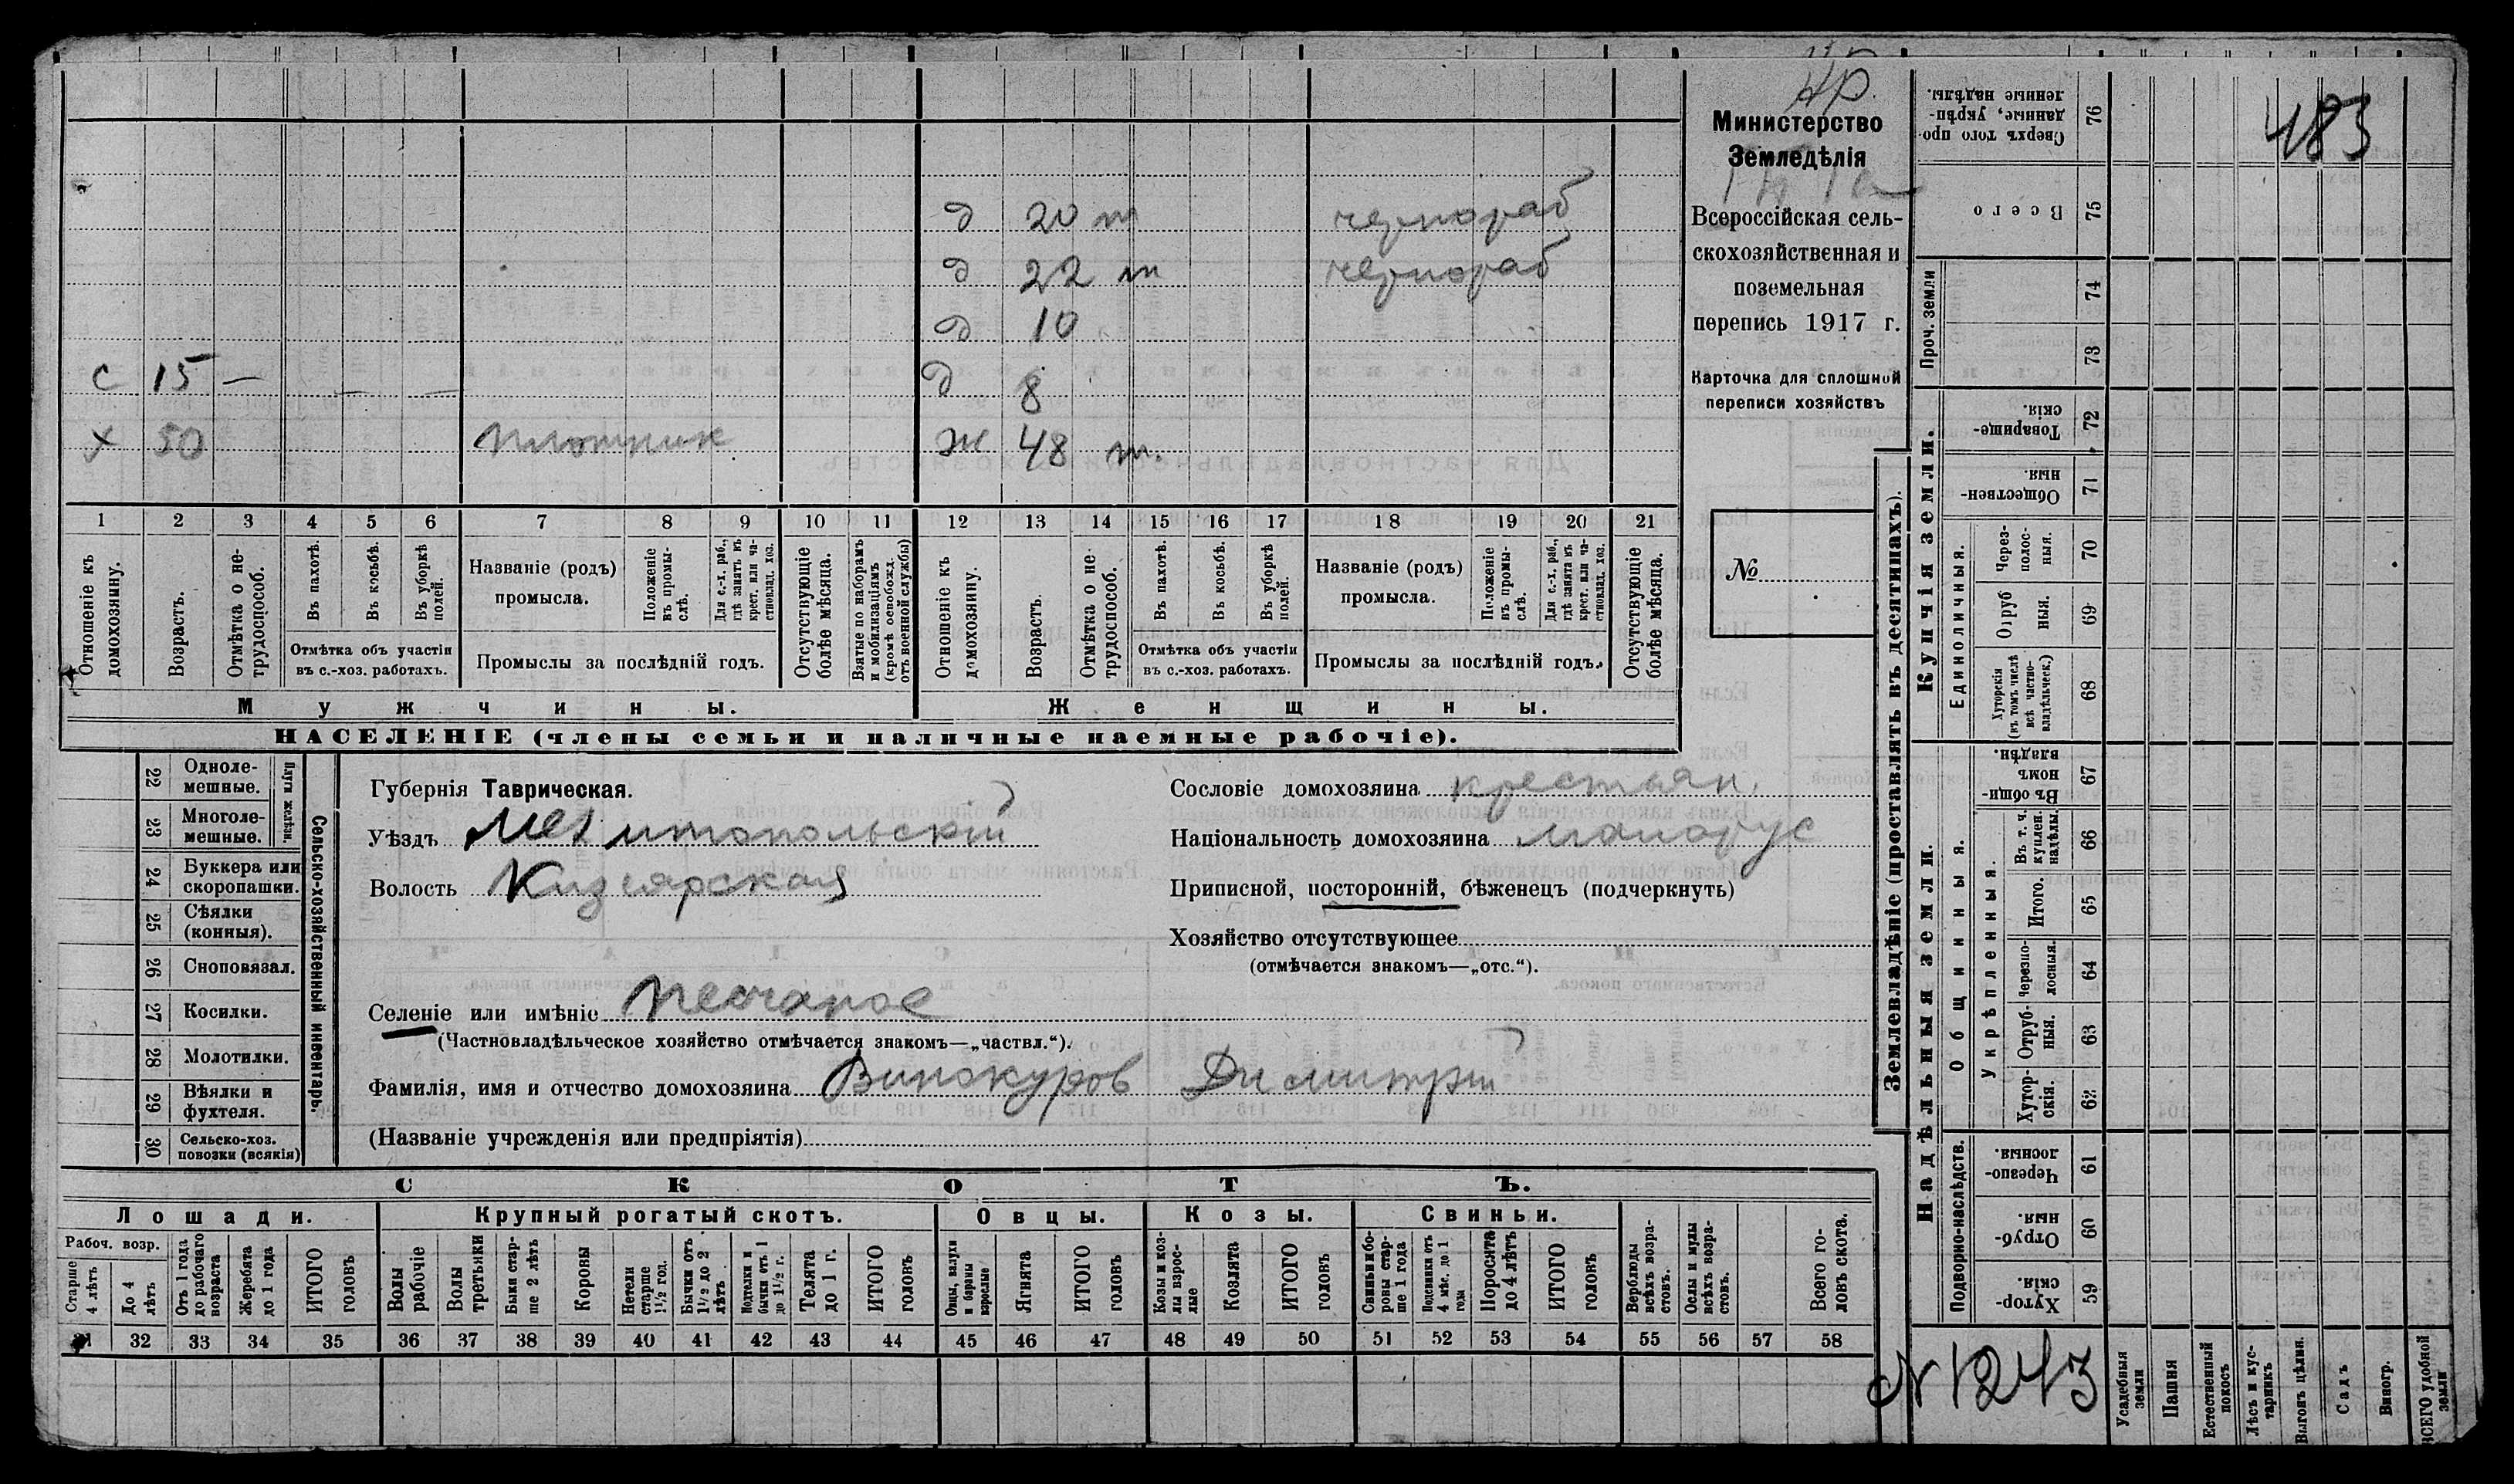 Н Р.
483
Министерство
Земледѣлія
Всероссійская сель-
скохозяйственная и
поземельная
перепись 1917 г.
Карточка для сплошной
переписи хозяйствъ
№
д 20 т чернораб
д 22 т чернораб
д 10
с 15 — — — д 8
х 50 плотник ж 48 т.
1 2 3 4 5 6 7 8 9 10 11 12 13 14 15 16 17 18 19 20 21
Отношеніе къ домохозяину.
Возрастъ.
Отмѣтка о не-трудоспособ.
Въ пахотѣ.
Въ косьбѣ.
Въ уборкѣ полей.
Отмѣтка объ участіи
въ с.-хоз. работахъ.
Названіе (родъ)
промысла.
Положеніе въ промы-слѣ.
Для с.-х. раб., гдѣ занятъ въ крест. или ча-стновлад. хоз.
Промыслы за послѣдній годъ.
Отсутствующіе болѣе мѣсяца.
Взятые по наборамъ и мобилизаціямъ (кромѣ освобожд. отъ военной службы)
Отношеніе къ домохозяину.
Возрастъ.
Отмѣтка о не-трудоспособ.
Въ пахотѣ.
Въ косьбѣ.
Въ уборкѣ полей.
Отмѣтка объ участіи
въ с.-хоз. работахъ.
Названіе (родъ)
промысла.
Положеніе въ промы-слѣ.
Для с.-х. раб., гдѣ занята въ крест. или ча-стновлад. хоз.
Промыслы за послѣдній годъ.
Отсутствующіе болѣе мѣсяца.
Мужчины. Женщины.
НАСЕЛЕНІЕ (члены семьи и наличные наемные рабочіе).
Сельско-хозяйственный инвентарь.
Плуги желѣзн.
22 Одноле-мешные.
23 Многоле-мешные.
24 Буккера или скоропашки.
25 Сѣялки (конныя).
26 Сноповязал.
27 Косилки.
28 Молотилки.
29 Вѣялки и фухтеля.
30 Сельско-хоз. повозки (всякія)
Губернія Таврическая.
Уѣздъ Мелитопольскій
Волость Кизиярская
Сословіе домохозяина крестьян.
Національность домохозяина малорус
Приписной, посторонній, бѣженецъ (подчеркнуть)
Хозяйство отсутствующее
(отмѣчается знакомъ—„отс.“).
Селеніе или имѣніе Песчаное
(Частновладѣльческое хозяйство отмѣчается знакомъ—„частвл.“).
Фамилія, имя и отчество домохозяина Винокуров Димитрій
(Названіе учрежденія или предпріятія)
СКОТЪ.
Лошади. Крупный рогатый скотъ. Овцы. Козы. Свиньи.
Рабоч. возр.
Старше 4 лѣтъ
До 4 лѣтъ
Отъ 1 года до рабочаго возраста
Жеребята до 1 года
ИТОГО головъ
Волы рабочіе
Волы третьяки
Быки стар-ше 2 лѣтъ
Коровы
Нетели старше 1½ год.
Бычки отъ 1½ до 2 лѣтъ
Подтелки и бычки отъ 1 до 1½ г.
Телята до 1 г.
ИТОГО головъ
Овцы, валухи и бараны взрослые
Ягнята
ИТОГО головъ
Козы и коз-лы взрос-лые
Козлята
ИТОГО головъ
Свиньи и бо-ровы стар-ше 1 года
Подсвинки отъ 4 мѣс. до 1 года
Поросята до 4 лѣтъ
ИТОГО головъ
Верблюды всѣхъ возра-стовъ.
Ослы и мулы всѣхъ возра-стовъ.
Всего го-ловъ скота.
31 32 33 34 35 36 37 38 39 40 41 42 43 44 45 46 47 48 49 50 51 52 53 54 55 56 57 58
Землевладѣніе (проставлять въ десятинахъ).
Сверхъ того про-данные, укрѣп-ленные надѣлы. 76
Всего 75
Проч. земли
74
73
Купчія земли.
Товарище-скія. 72
Обществен-ныя. 71
Единоличныя.
Через-полос-ныя. 70
Отруб ныя. 69
Хуторскія (въ томъ числѣ всѣ частно-владѣльческ.) 68
Надѣльныя земли.
Общинныя.
Въ общи-номъ владѣн. 67
Укрѣпленныя.
Въ т. ч. куплен. надѣлы. 66
Итого. 65
Черезпо-лосныя. 64
Отруб-ныя. 63
Хутор-скія. 62
Подворно-наслѣдств.
Черезпо-лосныя. 61
Отруб-ныя. 60
Хутор-скія. 59
№ 1243
Усадебныя земли
Пашня
Естественный покосъ
Лѣсъ и кус-тарникъ
Выгонъ цѣлин.
Садъ
Виногр.
ВСЕГО удобной земли